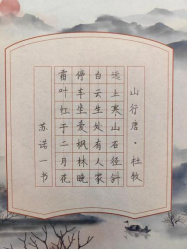 山行唐·杜牧
远上寒山石径斜
白云生处有人家
停车坐爱枫林晚
霜叶红于二月花
苏诺一书